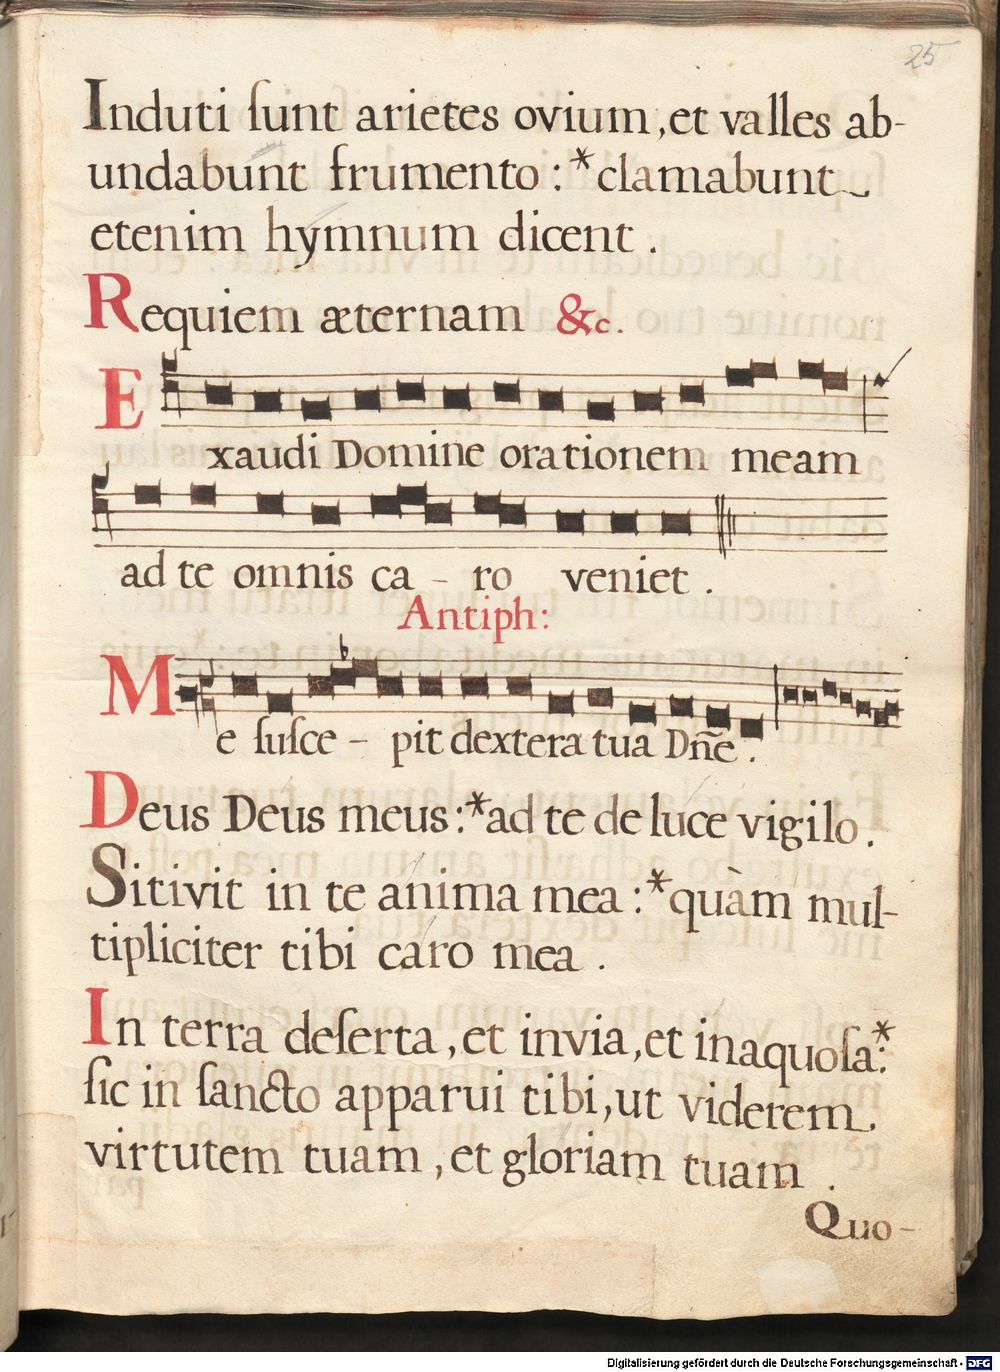 25
Induti ſunt arietes ovium, et valles ab-
undabunt frumento : * clamabunt
etenim hymnum dicent .
Requiem æternam &c.
Exaudi Domine orationem meam
ad te omnis ca - ro veniet .
Antiph:
Me ſuſce - pit dextera tua Dn̄e .
Deus Deus meus : * ad te de luce vigilo .
Sitivit in te anima mea : * quàm mul-
tipliciter tibi caro mea .
In terra deſerta, et invia, et inaquoſa : *
ſic in ſancto apparui tibi, ut viderem
virtutem tuam, et gloriam tuam .
Quo-
Digitalisierung gefördert durch die Deutsche Forschungsgemeinschaft - DFG